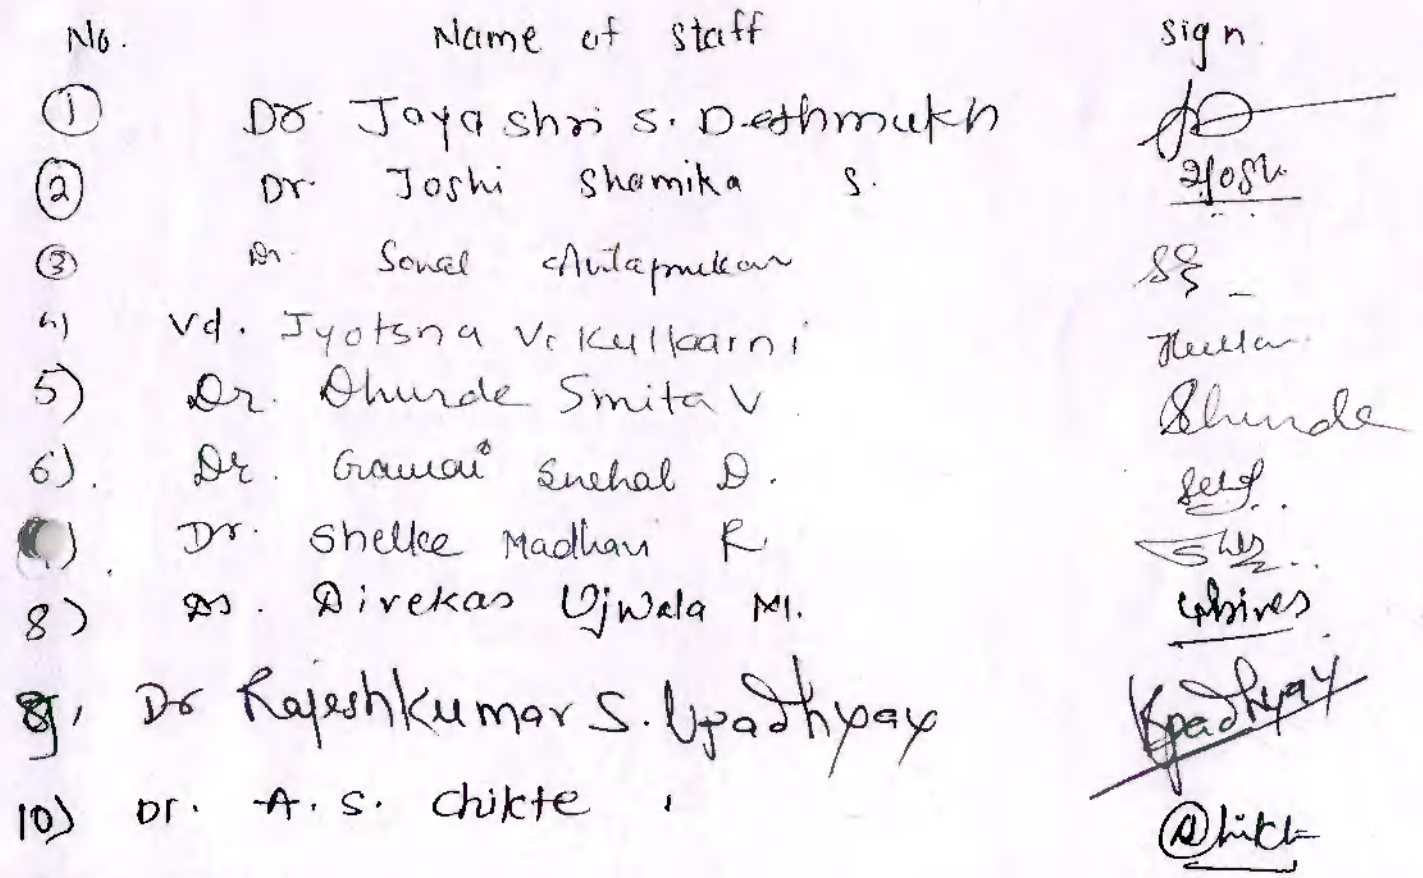 No. Name of staff sign.
① Dr Jayashri S. Deshmukh
② Dr. Joshi Shamika S.
③ Dr. Sonal
4) Vd. Jyotsna V. Kulkarni
5) Dr. Dhurde Smita V Dhurde
6). Dr. Gawai Snehal D.
). Dr. Shelke Madhavi R
8) Dr. Direkar Ujwala M.
9) Dr Rajeshkumar S. Upadhyay Upadhyay
10) Dr. A. S. Chikte